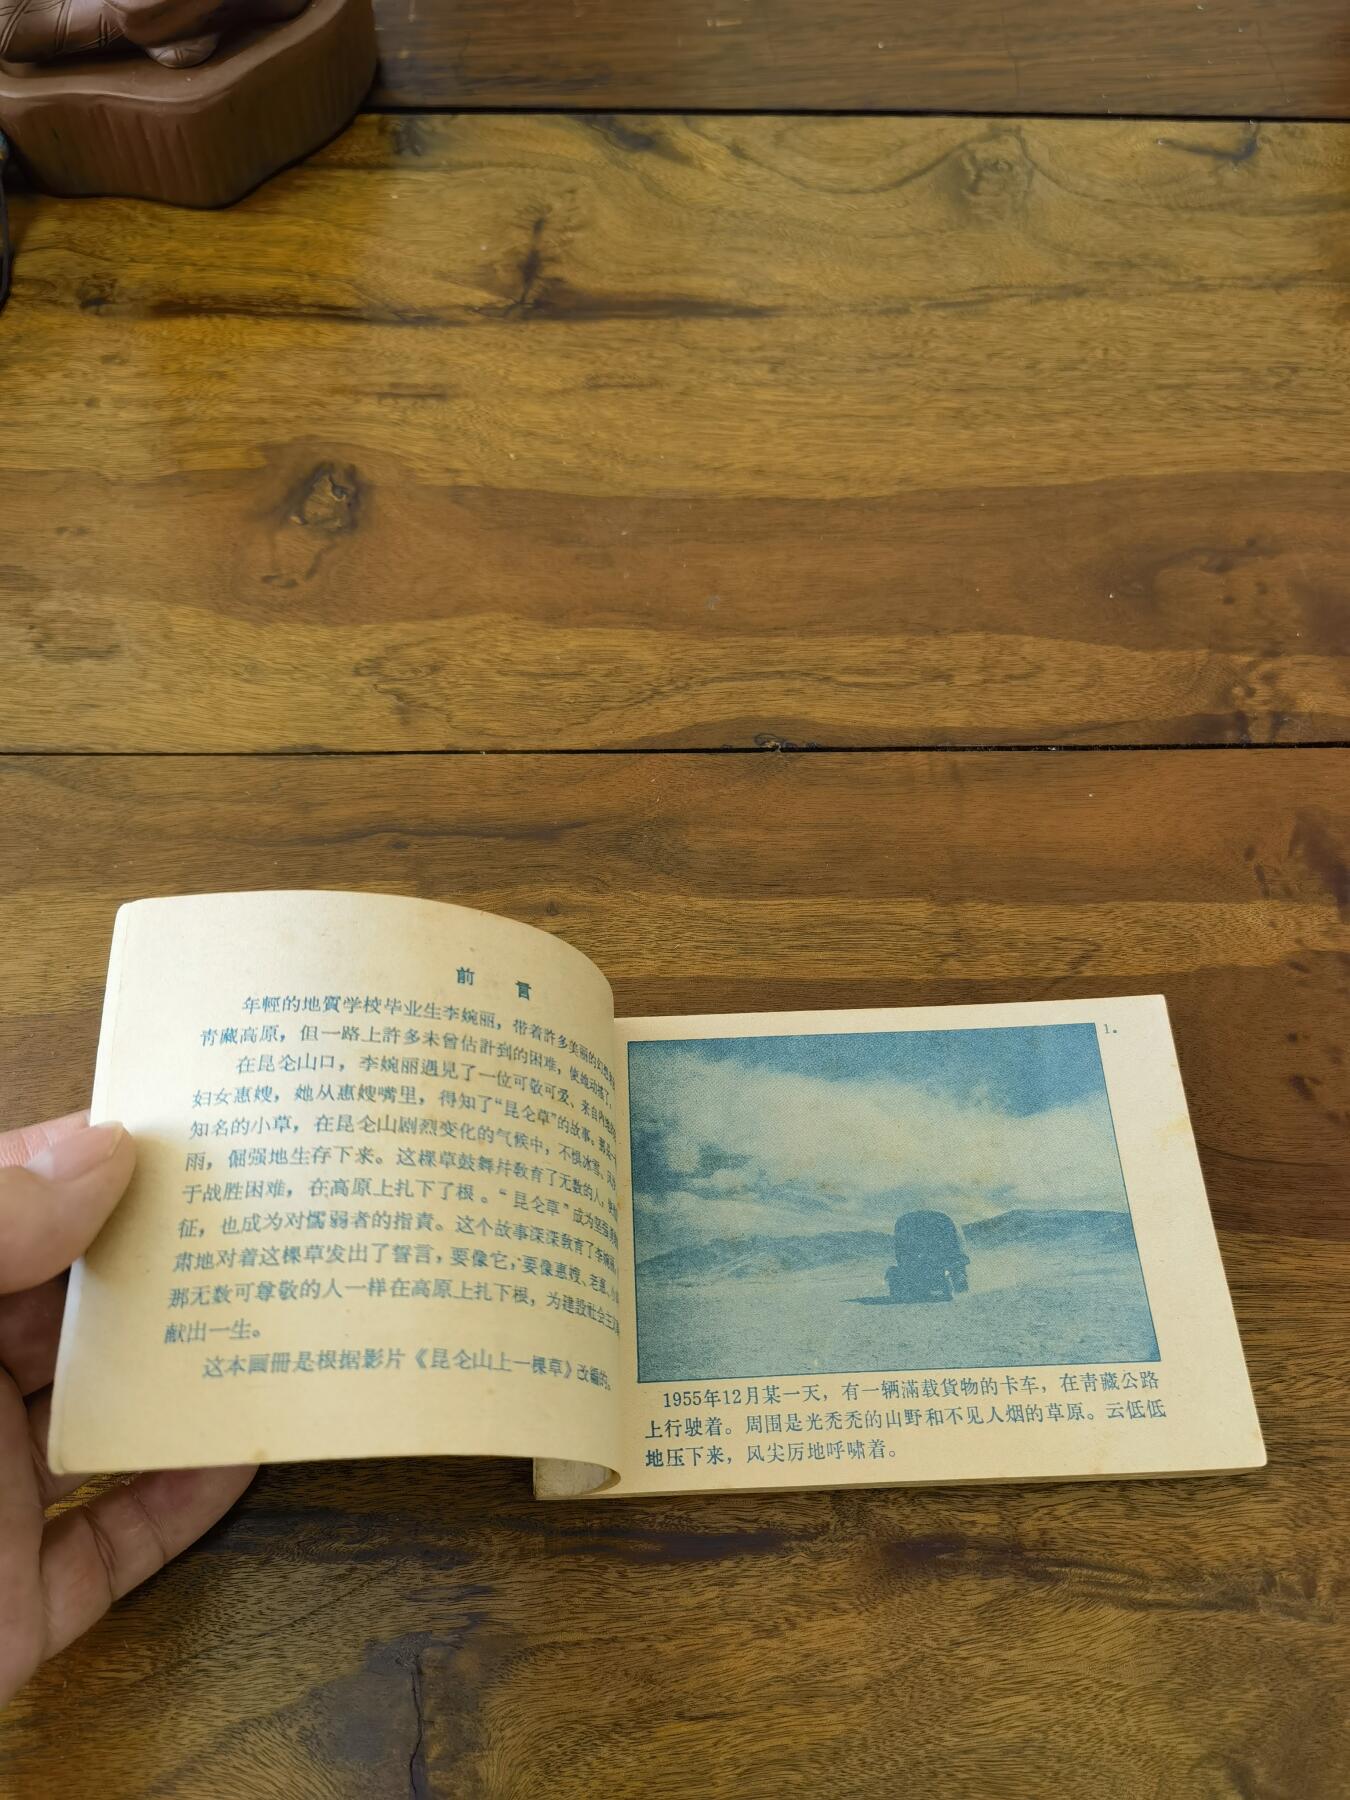 前 言
年輕的地質学校毕业生李婉丽，带着許多美丽的幻想
青藏高原，但一路上許多未曾估計到的困难，使她动搖了。
在昆仑山口，李婉丽遇見了一位可敬可爱、来自内地的
妇女惠嫂，她从惠嫂嘴里，得知了“昆仑草”的故事。
知名的小草，在昆仑山剧烈变化的气候中，不惧冰雪、
雨，倔强地生存下来。这棵草鼓舞幷敎育了无数的人，
于战胜困难，在高原上扎下了根。“昆仑草”成为坚强
征，也成为对懦弱者的指責。这个故事深深敎育了李婉丽，
肃地对着这棵草发出了誓言，要像它，要像惠嫂、老惠、
那无数可尊敬的人一样在高原上扎下根，为建設社会主义
献出一生。
这本画冊是根据影片《昆仑山上一棵草》改編的。
1.
1955年12月某一天，有一辆滿载貨物的卡车，在靑藏公路
上行驶着。周围是光秃秃的山野和不见人烟的草原。云低低
地压下来，风尖厉地呼啸着。